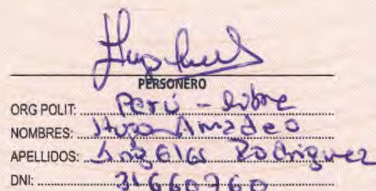 PERSONERO
ORG POLIT: Perú - Libre
NOMBRES: Hugo Amadeo
APELLIDOS: Angeles Rodriguez
DNI: 31660760